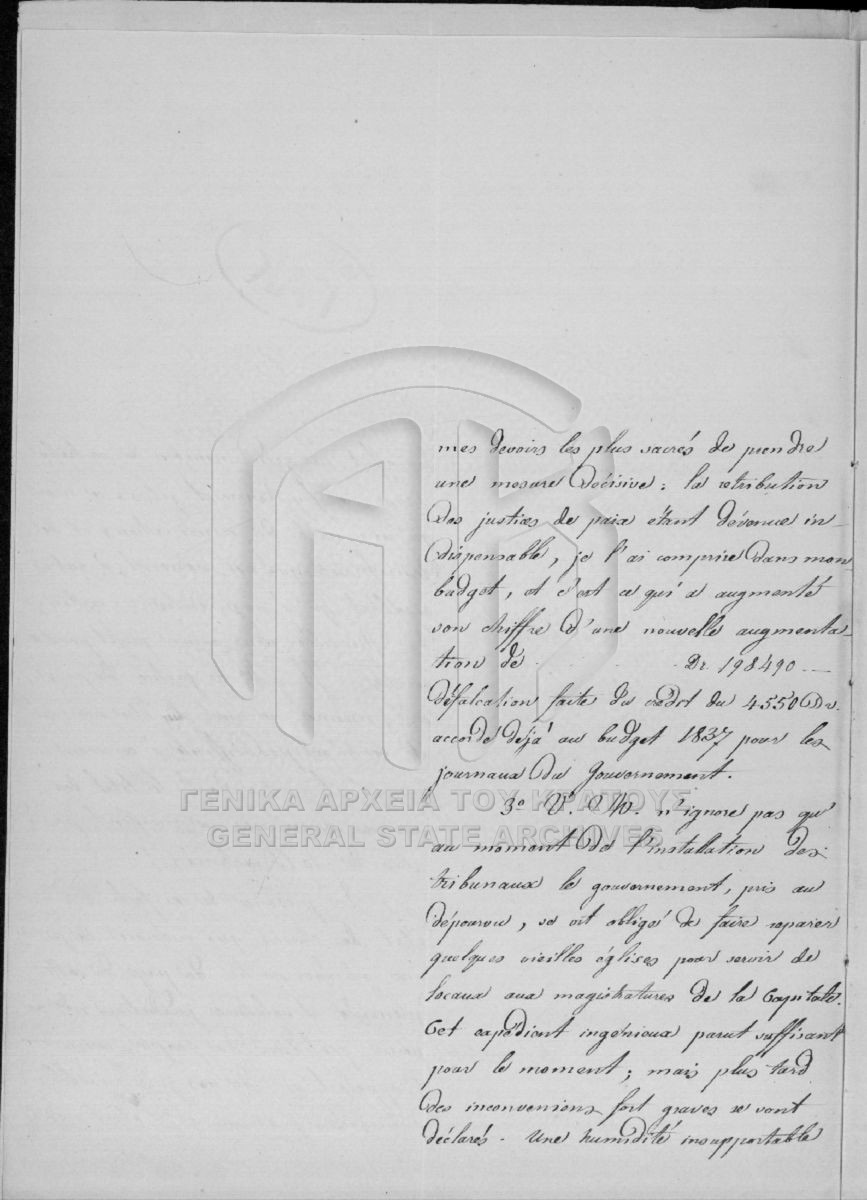 mes devoirs les plus sacrés de prendre
une mesure décisive : la retribution
des justices de paix étant dévenue in-
dispensable, je l'ai comprise dans mon
budget, et c'est ce qui a augmenté
son chiffre d'une nouvelle augmenta-
tion de . . . Dr. 198490 —
défalcation faite du crédit du 4550 Dr.
accordé dejà au budget 1837 pour les
journaux du Gouvernement.
3º V. M. n'ignore pas qu'
au moment de l'installation des
tribunaux le gouvernement, pris au
dépourvu, se vit obligé de faire reparer
quelques vieilles églises pour servir de
locaux aux magistratures de la Capitale.
Cet expédient ingénieux parut suffisant
pour le moment ; mais plus tard
des inconveniens fort graves se sont
déclarés. Une humidité insupportable
ΓΕΝΙΚΑ ΑΡΧΕΙΑ ΤΟΥ ΚΡΑΤΟΥΣ
GENERAL STATE ARCHIVES